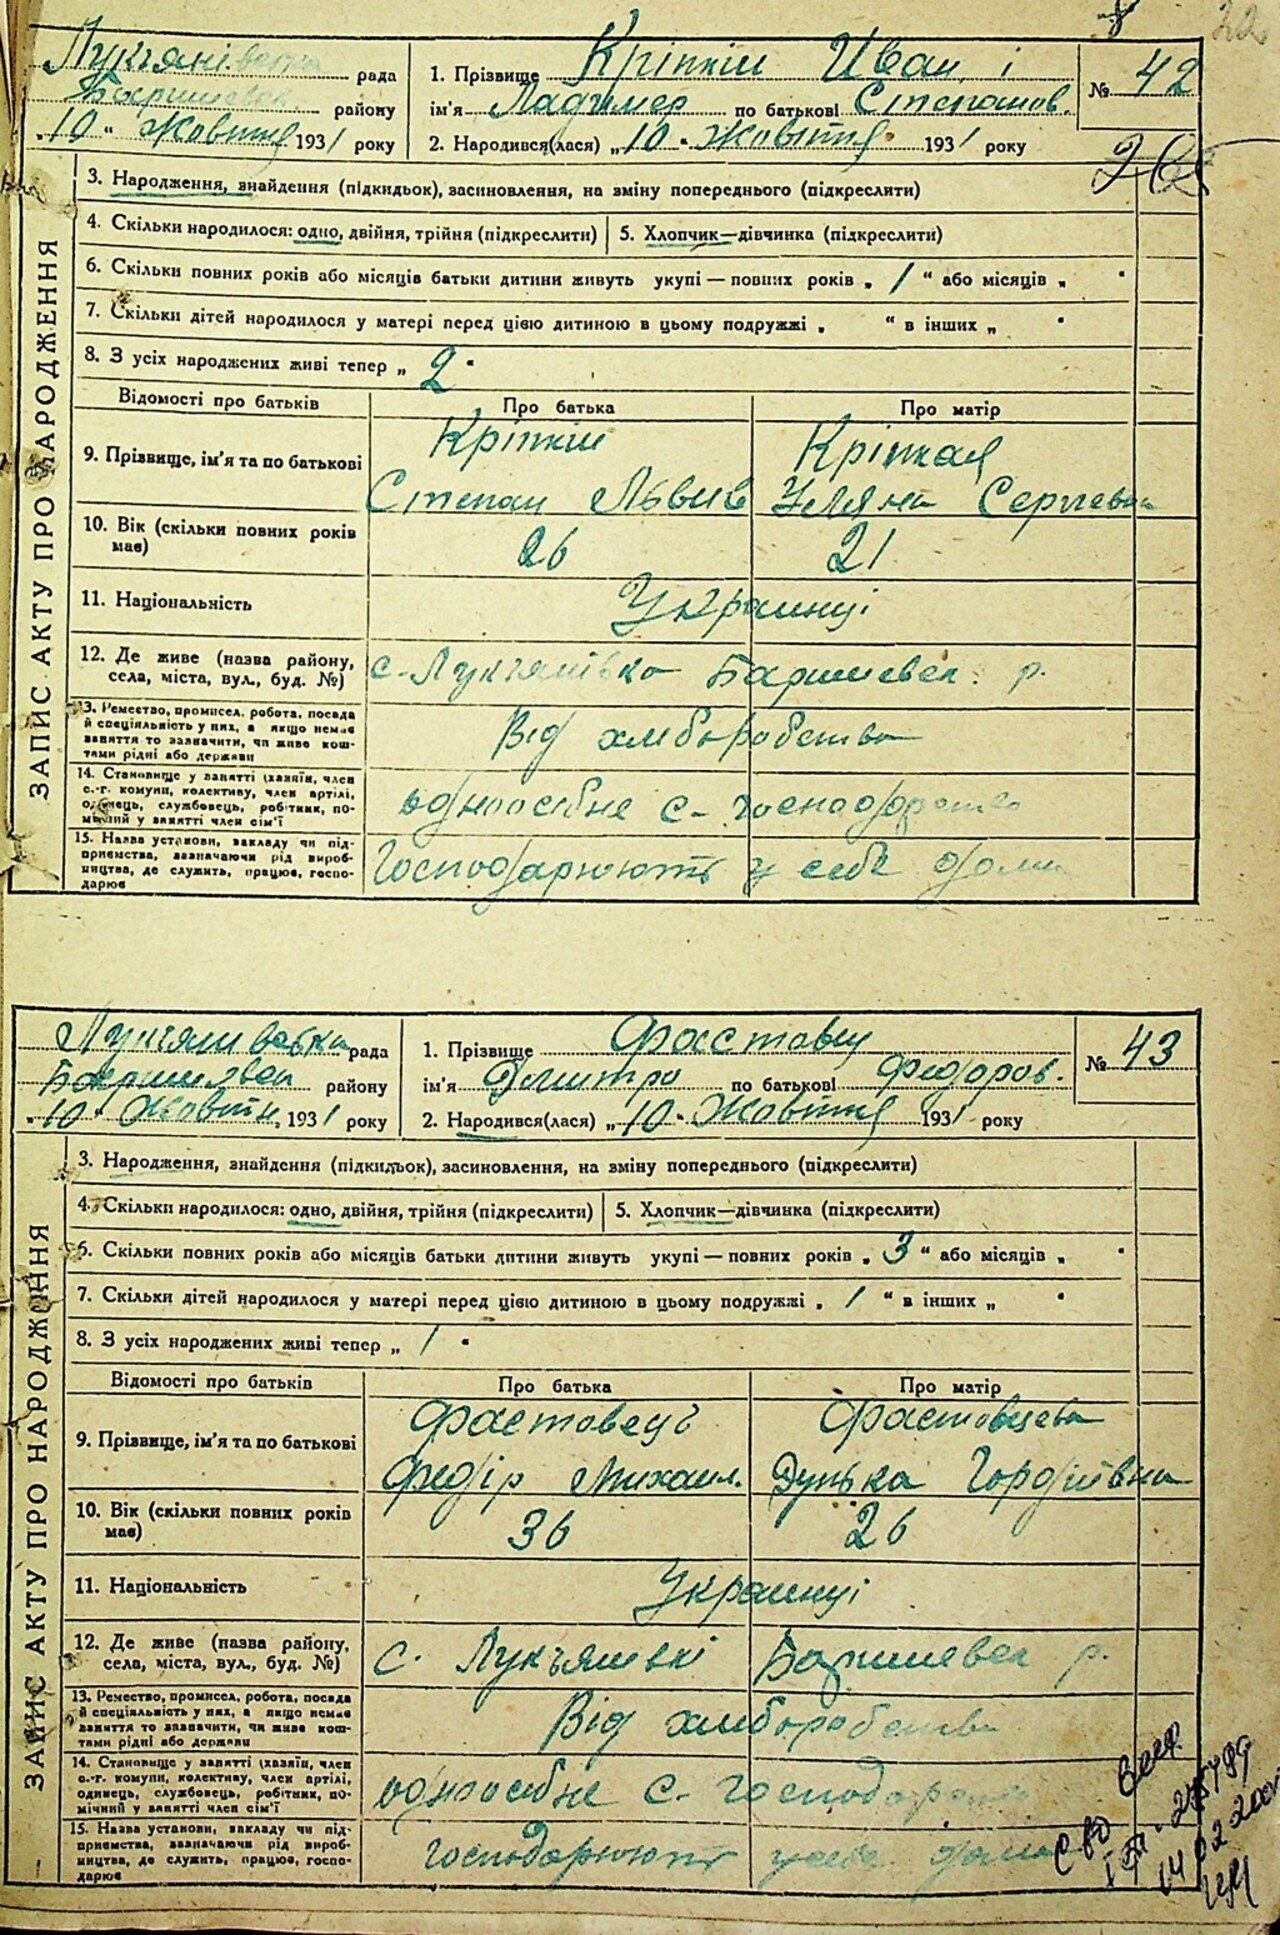 22
Лукъянівська рада
Баришевск. району
„10“ Жовтня 1931 року
1. Прізвище Кріпкій Иван і
ім'я Ладимер по батькові Степанов.
2. Народився(лася) „10“ Жовтня 1931 року
№ 42
ЗАПИС АКТУ ПРО НАРОДЖЕННЯ
3. Народження, знайдення (підкидьок), засиновлення, на зміну попереднього (підкреслити)
4. Скільки народилося: одно, двійня, трійня (підкреслити) 5. Хлопчик—дівчинка (підкреслити)
6. Скільки повних років або місяців батьки дитини живуть укупі — повних років „1“ або місяців „ “
7. Скільки дітей народилося у матері перед цією дитиною в цьому подружжі „ “ в інших „ “
8. З усіх народжених живі тепер „2“
Відомості про батьків Про батька Про матір
9. Прізвище, ім'я та по батькові
Кріпкій Кріпкая
Степан Львив Уляна Сергіевна
10. Вік (скільки повних років має) 26 21
11. Національність Украинці
12. Де живе (назва району, села, міста, вул., буд. №) с. Лукъянівка Баришевск. р.
13. Ремество, промисел, робота, посада й спеціяльність у них, а якщо немає заняття то зазначити, чи живе коштами рідні або держави
Від хліборобства
14. Становище у занятті (хазяїн, член с.-г. комуни, колективу, член артілі, одинець, службовець, робітник, помічний у занятті член сім'ї
одноосібне с- господарство
15. Назва установи, закладу чи підприємства, зазначаючи рід виробництва, де служить, працює, господарює
Господарюють у себе дома
Лукъянивська рада
Баришевск району
„10“ Жовтн. 1931 року
1. Прізвище Фастовец
ім'я Дмитро по батькові Федоров.
2. Народився(лася) „10“ Жовтня 1931 року
№ 43
ЗАПИС АКТУ ПРО НАРОДЖЕННЯ
3. Народження, знайдення (підкидьок), засиновлення, на зміну попереднього (підкреслити)
4. Скільки народилося: одно, двійня, трійня (підкреслити) 5. Хлопчик—дівчинка (підкреслити)
6. Скільки повних років або місяців батьки дитини живуть укупі — повних років „3“ або місяців „ “
7. Скільки дітей народилося у матері перед цією дитиною в цьому подружжі „1“ в інших „ “
8. З усіх народжених живі тепер „1“
Відомості про батьків Про батька Про матір
9. Прізвище, ім'я та по батькові
Фастовець Фастовцева
Федір Михаил. Дунька Гордіївна
10. Вік (скільки повних років має) 36 26
11. Національність Украинці
12. Де живе (назва району, села, міста, вул., буд. №) с. Лукъянівкі Баришевск р.
13. Ремество, промисел, робота, посада й спеціяльність у них, а якщо немає заняття то зазначити, чи живе коштами рідні або держави
Від хліборобства
14. Становище у занятті (хазяїн, член с.-г. комуни, колективу, член артілі, одинець, службовець, робітник, помічний у занятті член сім'ї
одноосібне с- господарство
15. Назва установи, закладу чи підприємства, зазначаючи рід виробництва, де служить, працює, господарює
господарюють у себе дома